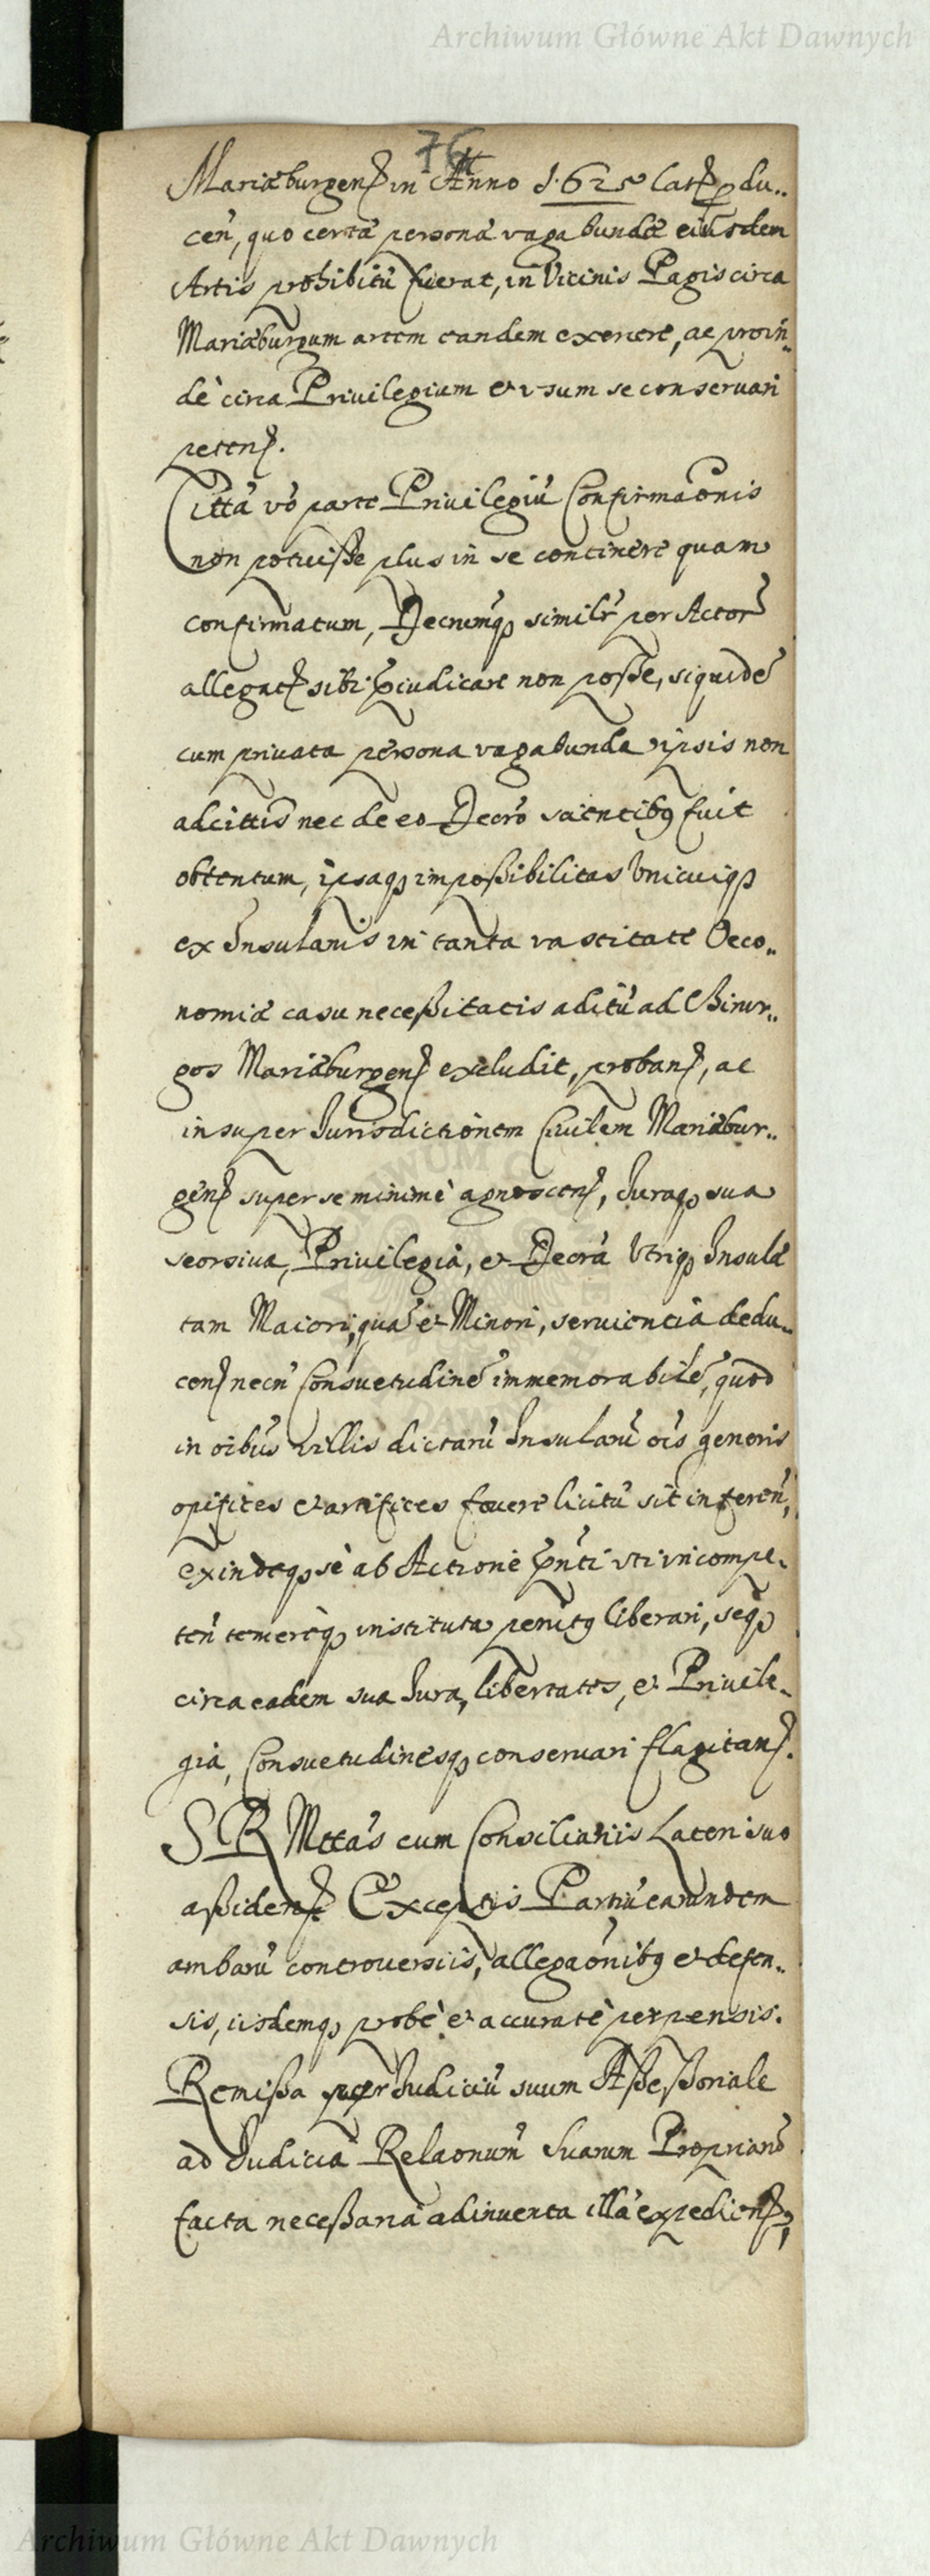 Archiwum Główne Akt Dawnych
76
Mariæburgens in Anno 1.625 lat p du..
cen, quo certæ personæ vagabundæ eiusdem
Artis prohibitũ fuerat, in Vicinis Pagis circa
Mariæburgum artem eandem exercere, ac proin..
dè circa Privilegium et vsum se conservari
petens.
Cittã vò parte Privilegiũ Confirmãonis
non potuisse plus in se continere quam
confirmatum, Decretumq similr per Actor
allegat sibi p̃iudicare non posse, siquidē
cum privata persona vagabunda ipsis non
adcittis nec de eo Decrõ scientibq fuit
obtentum, ipsaq impossibilitas Vnicuiq
ex Insulanis in tanta vastitate Oeco..
nomiæ casu necessitatis aditũ ad Chirur..
gos Mariæburgens excludit, probans, ac
insuper Jurisdictionem Civilem Mariæbur..
gens super se minimè agnoscens, Juraq sua
seorsiva, Privilegia, et Decrã Vtriq Insulæ
tam Maiori, quã et Minori, servientia dedu..
cens necñ Consvetudinẽ immemorabilẽ, quod
in oĩbus villis dictarũ Insularũ oĩs generis
opifices et artifices fovere licitũ sit inferen,
exindeq se ab Actione pñti vti incompe..
teñ temerèq instituta penitq liberari, seq
circa eadem sua Jura, libertates, et Privile..
gia, Consvetudinesq conservari flagitans.
S R Mttãs cum Consiliariis Lateri suo
assidens Exceptis Partiũ earundem
ambarũ controversiis, allegãonibq et defen..
sis, iisdemq probè et accuratè perpensis.
Remissa per Judiciũ suum Assessoriale
ad Judicia Relaonum Suarum Propriarũ
facta necessaria adinventa illã expediens,
Archiwum Główne Akt Dawnych